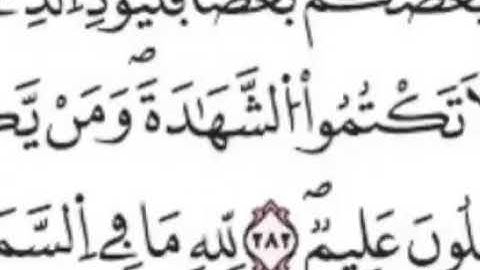 بَعْضُكُم بَعْضًا فَلْيُوَدِّ اِ۬لذِ
لَا تَكْتُمُواْ اُ۬لشَّهَٰدَةَۖ وَمَنْ يَّكْ
لُونَ عَلِيمٌۖ ٢٨٢ لِلهِ مَا فِے اِ۬لسَّمَ